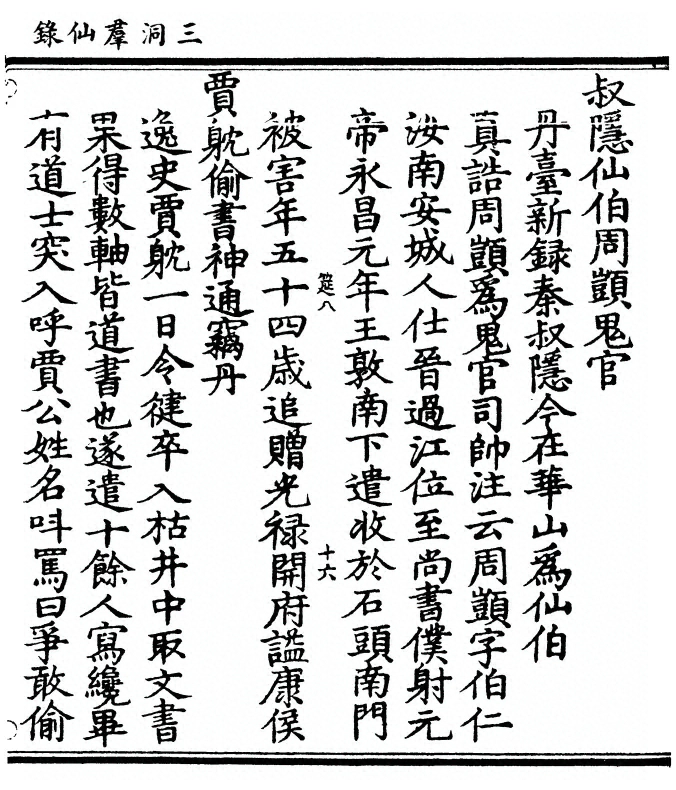 三洞羣仙錄
叔隱仙伯周顗鬼官
丹臺新録秦叔隱今在華山爲仙伯
真誥周顗爲鬼官司帥注云周顗字伯仁
汝南安城人仕晉過江位至尚書僕射元
帝永昌元年王敦南下遣收於石頭南門
筵八
十六
被害年五十四歲追贈光禄開府謚康侯
賈躭偷書神通竊丹
逸史賈躭一日令健卒入枯井中取文書
果得數軸皆道書也遂遣十餘人寫纔畢
有道士突入呼賈公姓名呌罵曰爭敢偷